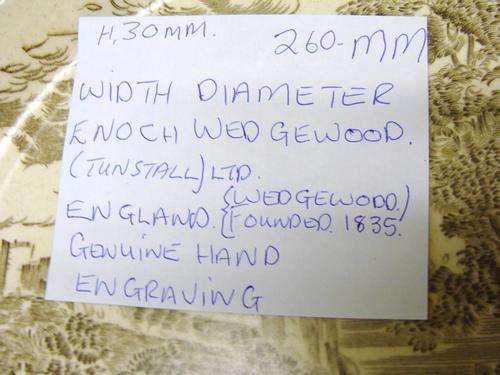 H. 30 MM. 260-MM
WIDTH DIAMETER
ENOCH WEDGEWOOD.
(TUNSTALL) LTD.
ENGLAND. {WEDGEWOOD.)
{FOUNDED. 1835.
GENUINE HAND
ENGRAVING